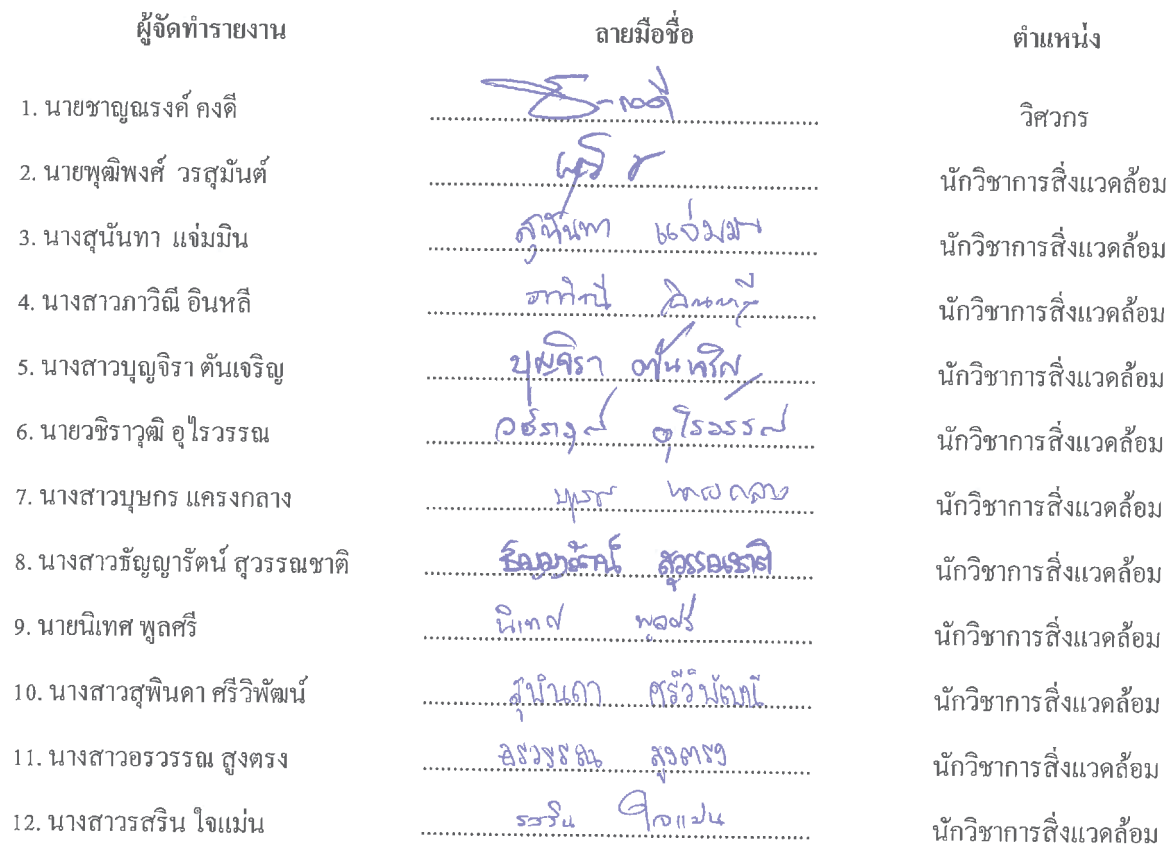 ผู้จัดทำรายงาน ลายมือชื่อ ตำแหน่ง
1. นายชาญณรงค์ คงดี วิศวกร
2. นายพุฒิพงศ์ วรสุมันต์ นักวิชาการสิ่งแวดล้อม
3. นางสุนันทา แจ่มมิน สุนันทา แจ่มมิน นักวิชาการสิ่งแวดล้อม
4. นางสาวภาวิณี อินหลี ภาวิณี อินหลี นักวิชาการสิ่งแวดล้อม
5. นางสาวบุญจิรา ตันเจริญ บุญจิรา ตันเจริญ นักวิชาการสิ่งแวดล้อม
6. นายวชิราวุฒิ อุไรวรรณ วชิราวุฒิ อุไรวรรณ นักวิชาการสิ่งแวดล้อม
7. นางสาวบุษกร แครงกลาง นักวิชาการสิ่งแวดล้อม
8. นางสาวธัญญารัตน์ สุวรรณชาติ ธัญญารัตน์ สุวรรณชาติ นักวิชาการสิ่งแวดล้อม
9. นายนิเทศ พูลศรี นิเทศ พูลศรี นักวิชาการสิ่งแวดล้อม
10. นางสาวสุพินดา ศรีวิพัฒน์ สุพินดา ศรีวิพัฒน์ นักวิชาการสิ่งแวดล้อม
11. นางสาวอรวรรณ สูงตรง อรวรรณ สูงตรง นักวิชาการสิ่งแวดล้อม
12. นางสาวรสริน ใจแม่น รสริน ใจแม่น นักวิชาการสิ่งแวดล้อม